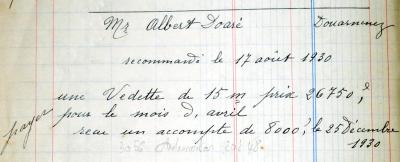 Mr Albert Doaré Douarnenez
recommandé le 17 août 1930
une Vedette de 15 m prix 26750,
pour le mois d, avril
payer
reau un accompte de 8000, le 25 Décembre
1930